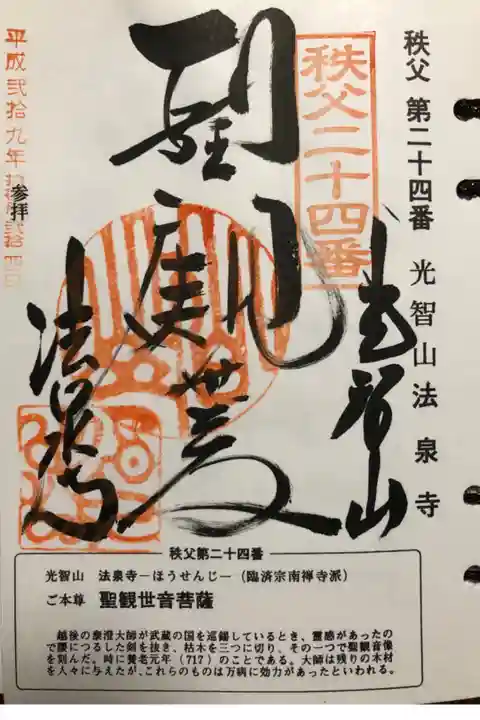 秩父 第二十四番 光智山法泉寺
秩父二十四番
光智山
聖観世音
法泉寺
参拝
平成弐拾九年
秩父第二十四番
光智山 法泉寺－ほうせんじ－（臨済宗南禅寺派）
ご本尊 聖観世音菩薩
越後の泰澄大師が武蔵の国を巡錫しているとき、霊感があったの
で腰につるした剣を抜き、枯木を三つに切り、その一つで聖観音像
を刻んだ。時に養老元年（717）のことである。大師は残りの木材
を人々に与えたが、これらのものは万病に効力があったといわれる。